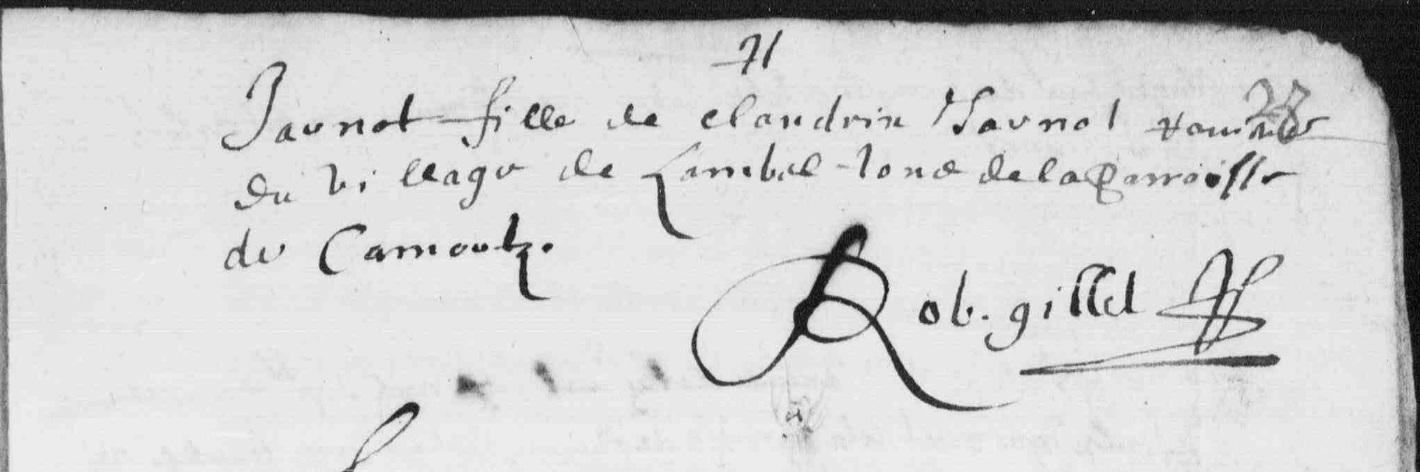 71
28
Jaunot fille de claudrin Jaunot
du village de Lambel - de la parroisse
de Camoutz.
Rob. gillet